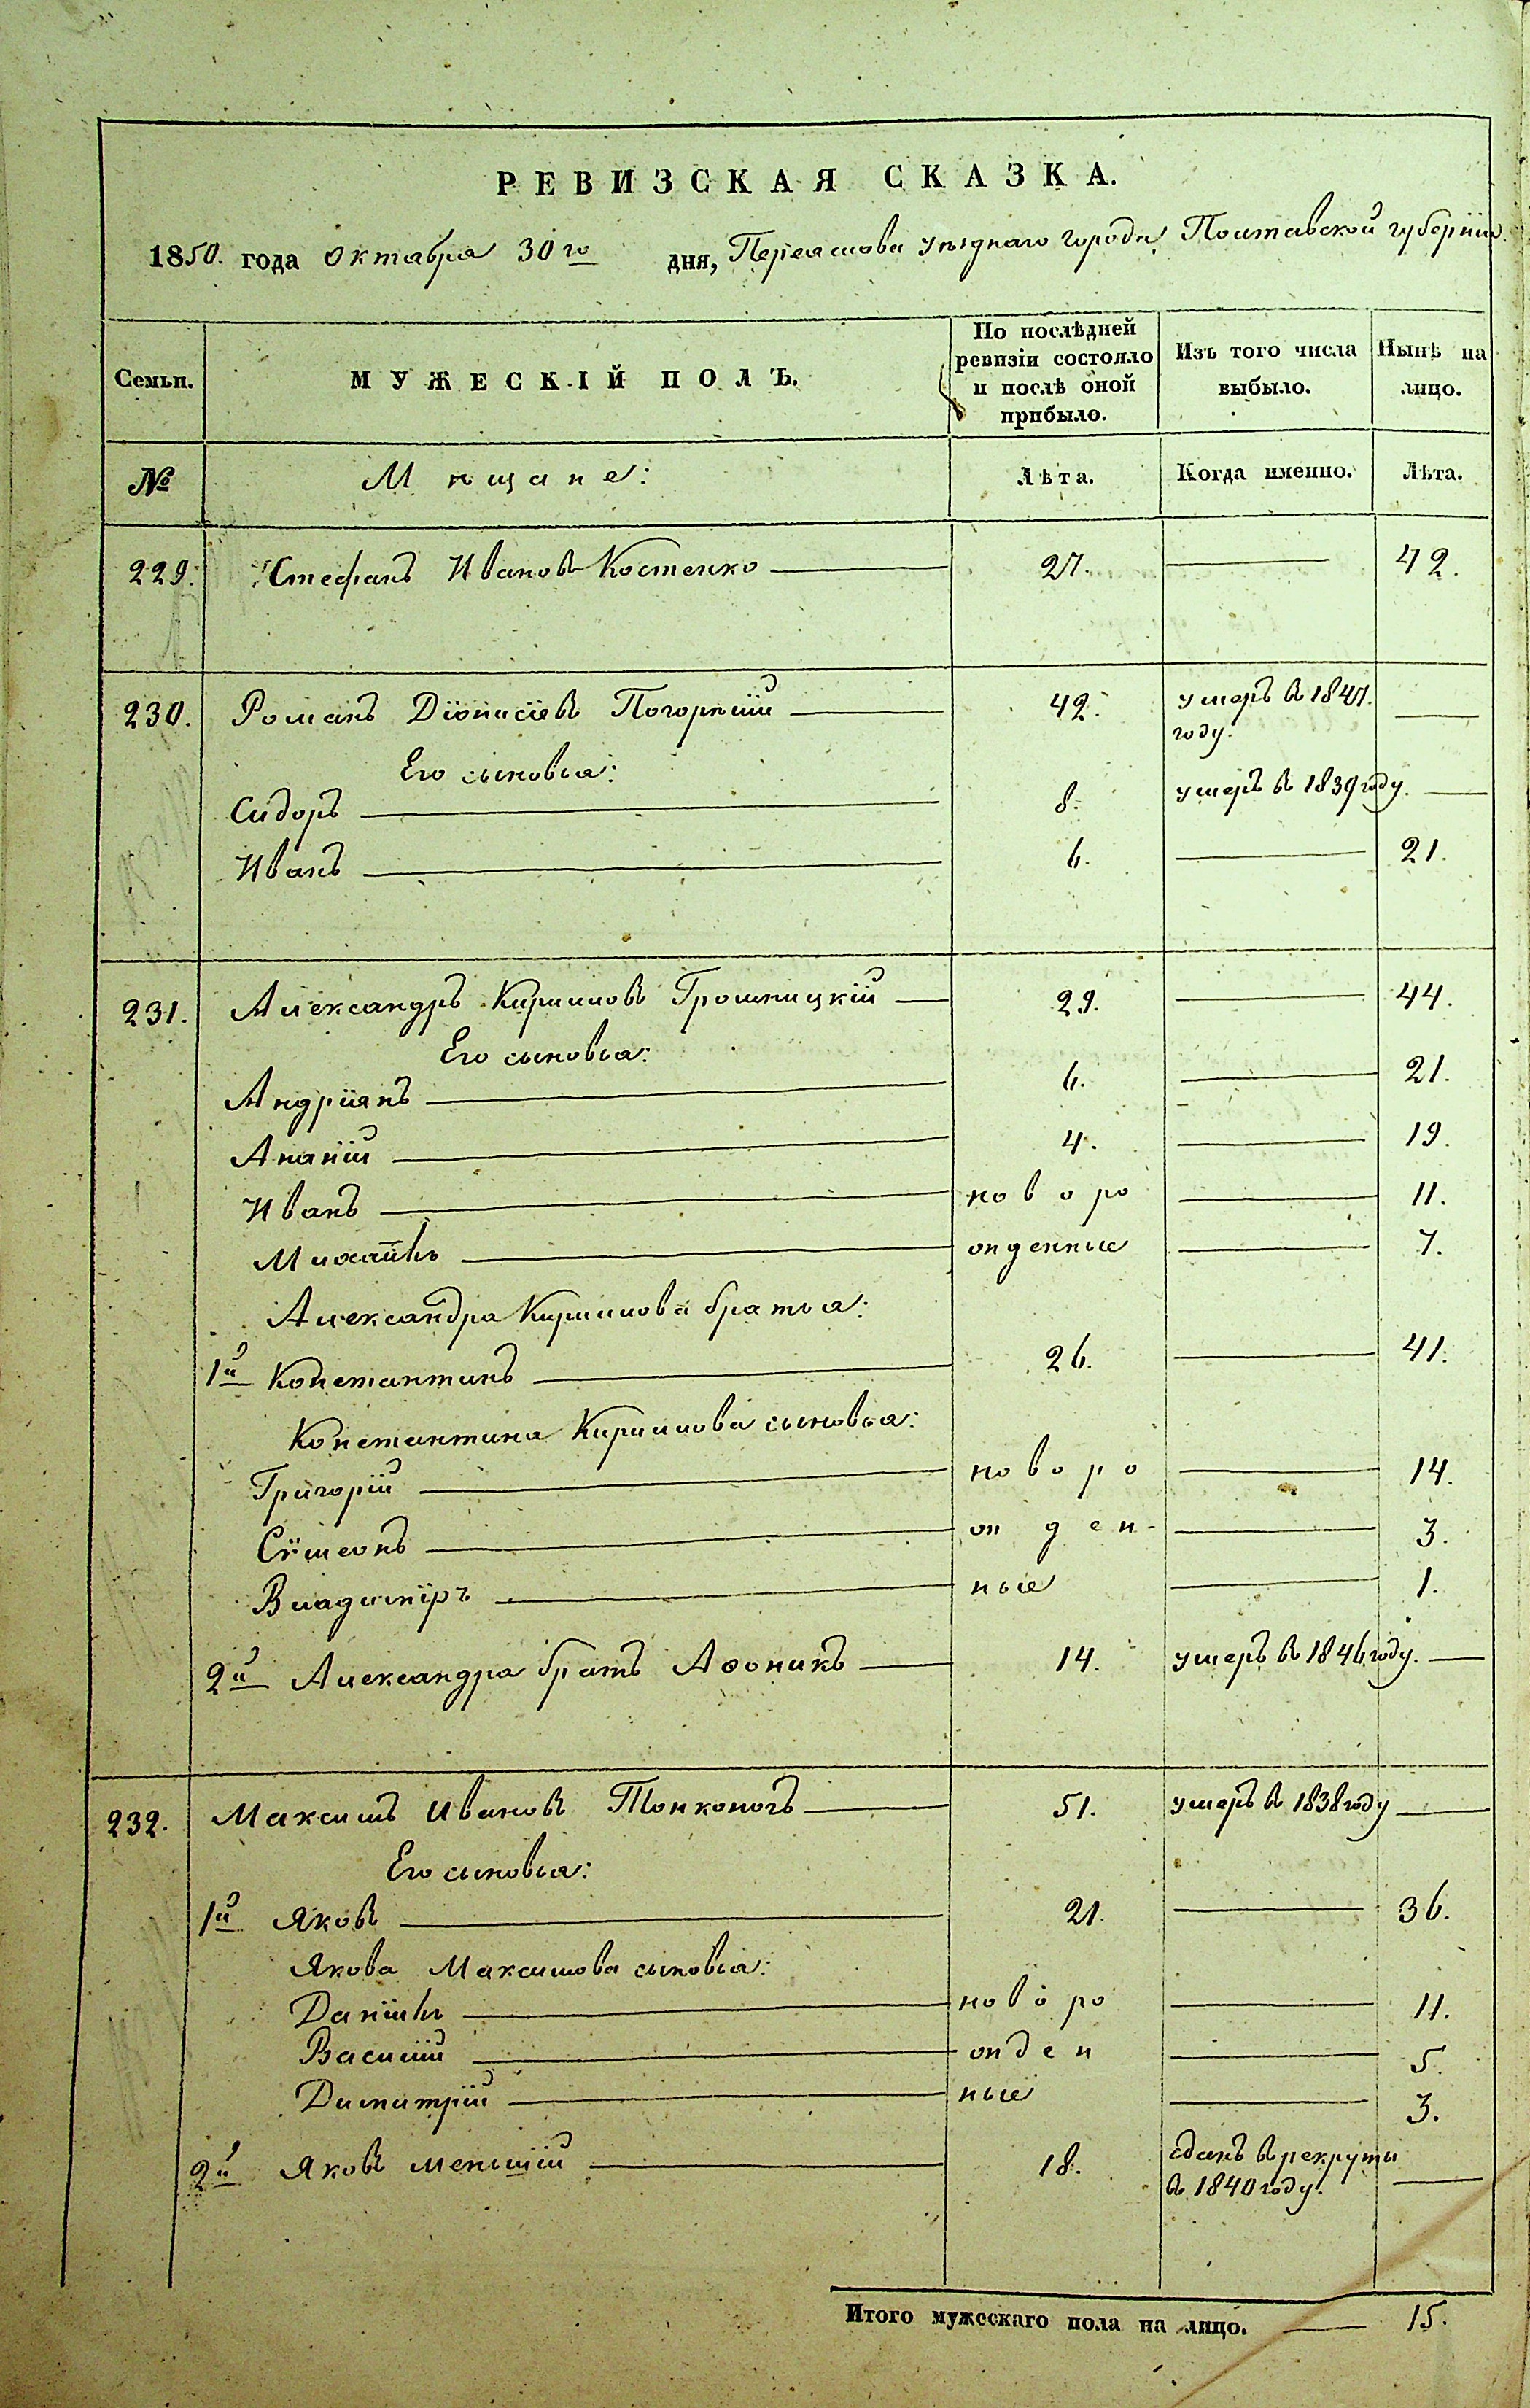 РЕВИЗСКАЯ СКАЗКА.
1850. года Октября 30го дня, Переяслова уѣзднаго города Полтавской губерніи.
Семьи. МУЖЕСКІЙ ПОЛЪ. По послѣдней ревизіи состояло и послѣ оной прибыло. Изъ того числа выбыло. Нынѣ на лицо.
№ Мѣщане: Лѣта. Когда именно. Лѣта.
229. Стефанъ Ивановъ Костенко 27. 42.
230. Романъ Діонисіевъ Погорѣлый 42. умеръ в 1847. году.
Его сыновья:
Сидоръ 8. умеръ в 1839 году.
Иванъ 6. 21.
231. Александръ Кирилловъ Грошицкій 29. 44.
Его сыновья:
Андріянъ 6. 21.
Ананій 4. 19.
Иванъ новоро 11.
Михаилъ жденные 7.
Александра Кириллова братья:
1й Константинъ 26. 41.
Константина Кириллова сыновья:
Григорій новоро 14.
Сѵмеонъ жден- 3.
Владиміръ ные 1.
2й Александра братъ Афоникъ 14. умеръ в 1846 году.
232. Максимъ Ивановъ Тонконогъ 51. умеръ в 1838 году
Его сыновья:
1й Яковъ 21. 36.
Якова Максимова сыновья:
Даніилъ новоро 11.
Василій жден 5.
Димитрій ные 3.
2й Яковъ меньшій 18. сданъ в рекруты
в 1840 году.
Итого мужескаго пола на лицо. 15.